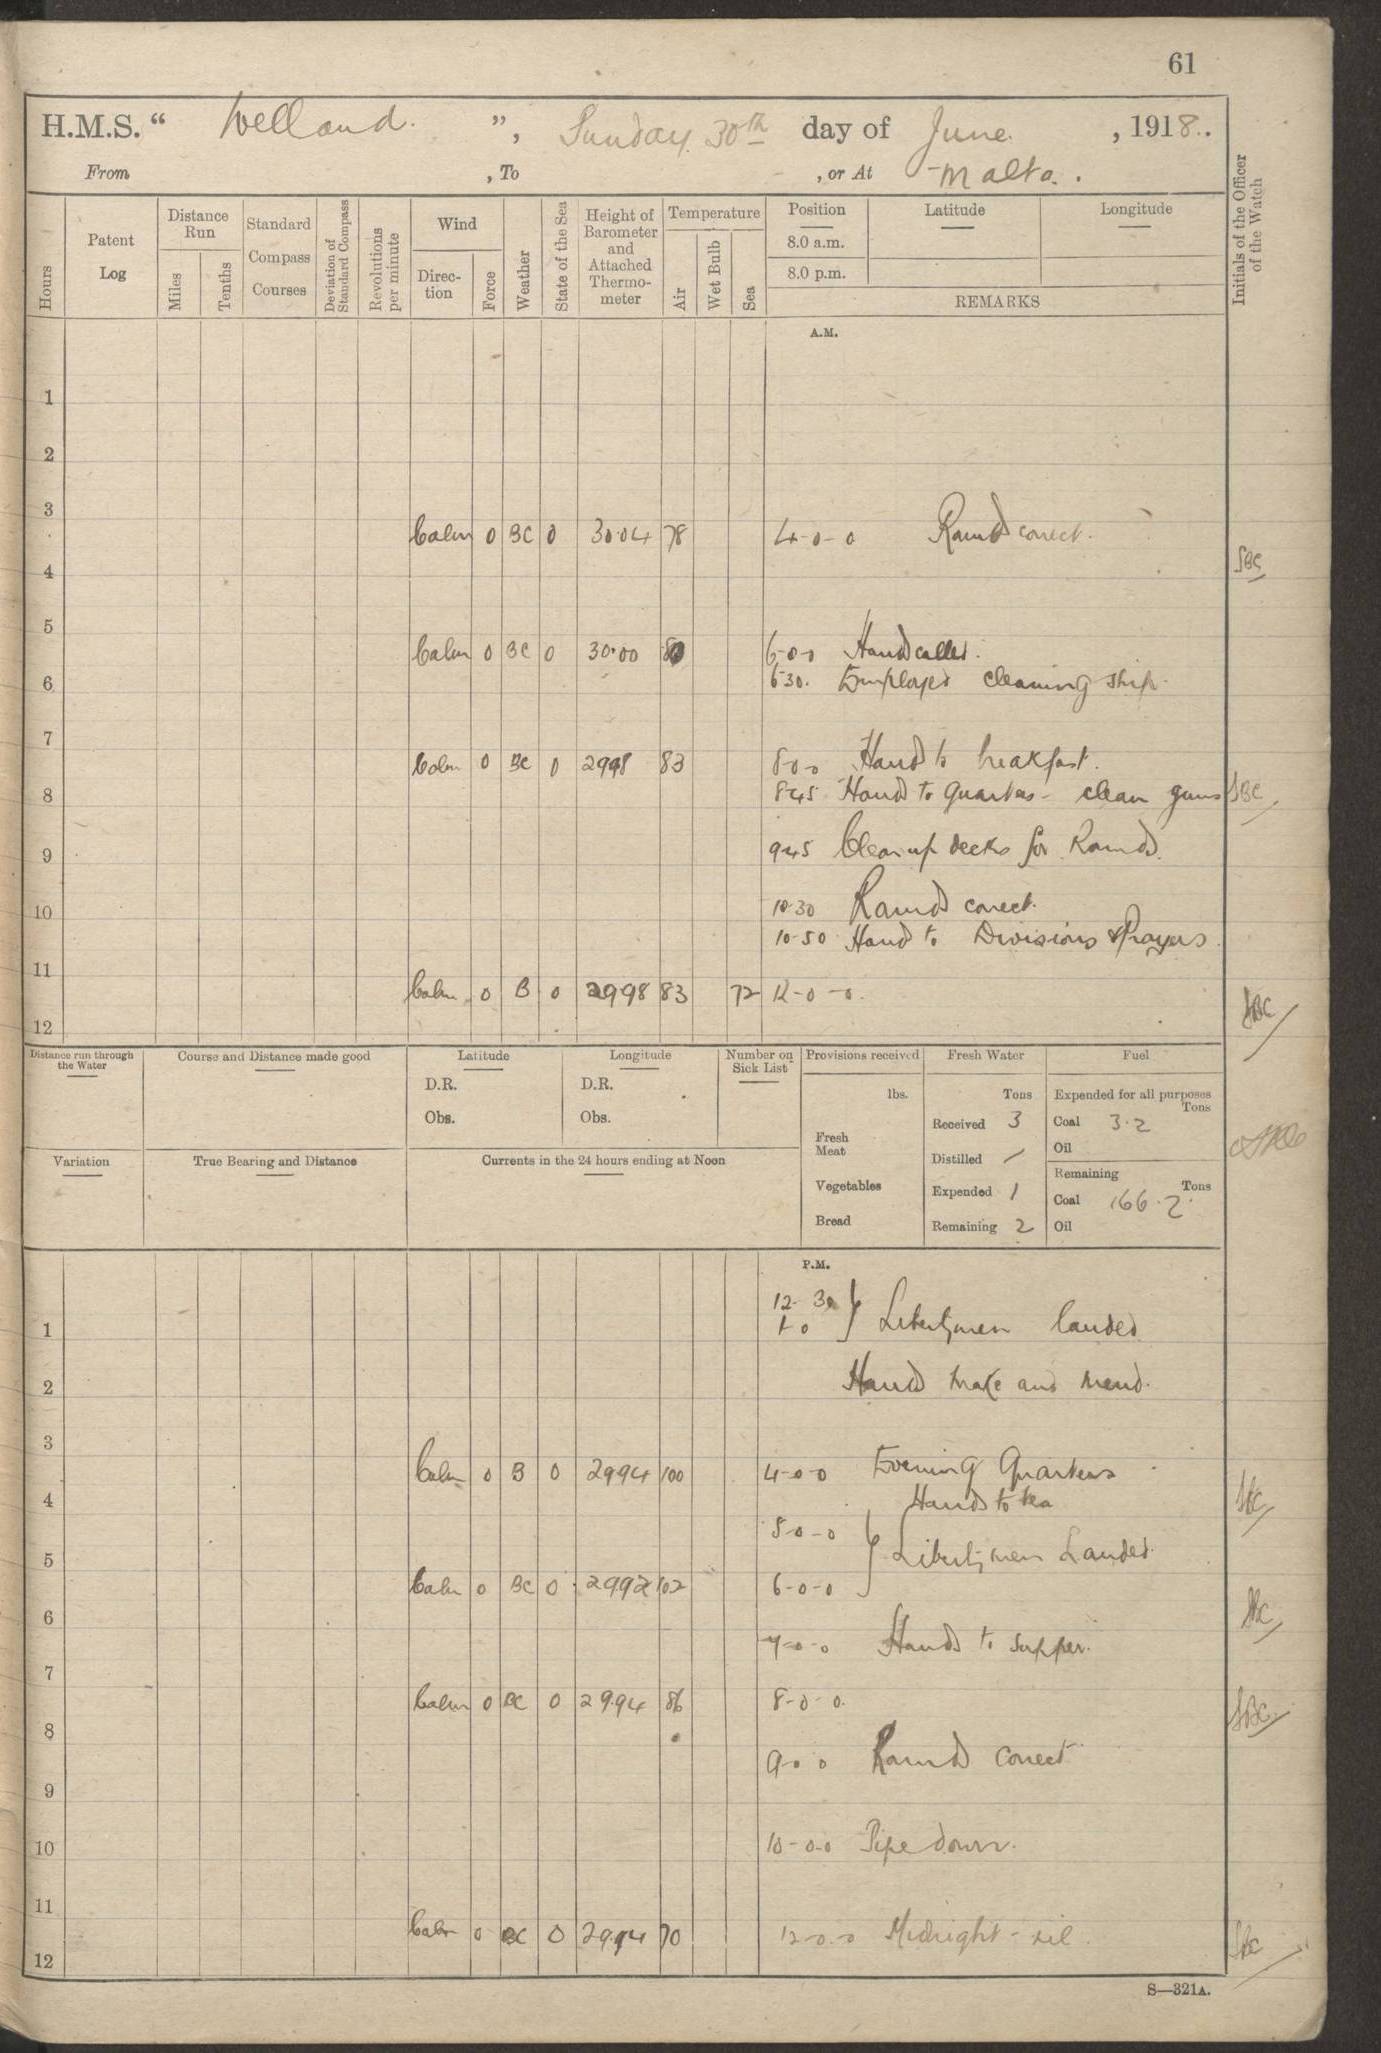 61
H.M.S. “ Welland. ”, Sunday 30th day of June. , 1918..
From , To , or At Malta.
Hours
Patent Log
Distance Run
Miles
Tenths
Standard Compass Courses
Deviation of Standard Compass
Revolutions per minute
Wind
Direction
Force
Weather
State of the Sea
Height of Barometer and Attached Thermometer
Temperature
Air
Wet Bulb
Sea
Position
8.0 a.m.
8.0 p.m.
Latitude
Longitude
REMARKS
Initials of the Officer of the Watch
A.M.
1
2
3
Calm 0 BC 0 30.04 78 4-0-0 Rounds correct.
4 SBC
5
Calm 0 BC 0 30.00 80 6-0-0 Hands called.
6 6-30. Employed cleaning ship.
7
Calm 0 BC 0 2998 83 8-0-0 Hands to breakfast.
8 8-45 Hands to Quarters - clean guns SBC
9 9-45 Clean up decks for Rounds.
10 10-30 Rounds correct.
10-50 Hands to Divisions & Prayers.
11
Calm 0 B 0 2998 83 72 12-0-0.
12 SBC
Distance run through the Water
Course and Distance made good
Latitude
D.R.
Obs.
Longitude
D.R.
Obs.
Number on Sick List
Provisions received
lbs.
Fresh Meat
Vegetables
Bread
Fresh Water
Tons
Received 3
Distilled /
Expended 1
Remaining 2
Fuel
Expended for all purposes
Tons
Coal 3.2
Oil
Remaining
Tons
Coal 166.2
Oil
Variation
True Bearing and Distance
Currents in the 24 hours ending at Noon
P.M.
12-30
1 1-0 } Libertymen landed
2 Hands make and mend.
3
Calm 0 B 0 2994 100 4-0-0 Evening Quarters
4 Hands to tea SBC
5-0-0
5 } Libertymen Landed.
Calm 0 BC 0 2992 102 6-0-0
6 SBC
7-0-0 Hands to supper.
7
Calm 0 BC 0 29.94 86 8-0-0.
8 SBC
9-0-0 Rounds correct
9
10 10-0-0 Pipe down.
11
Calm 0 BC 0 29.94 70 12-0-0 Midnight - nil.
12 SBC
S—321A.